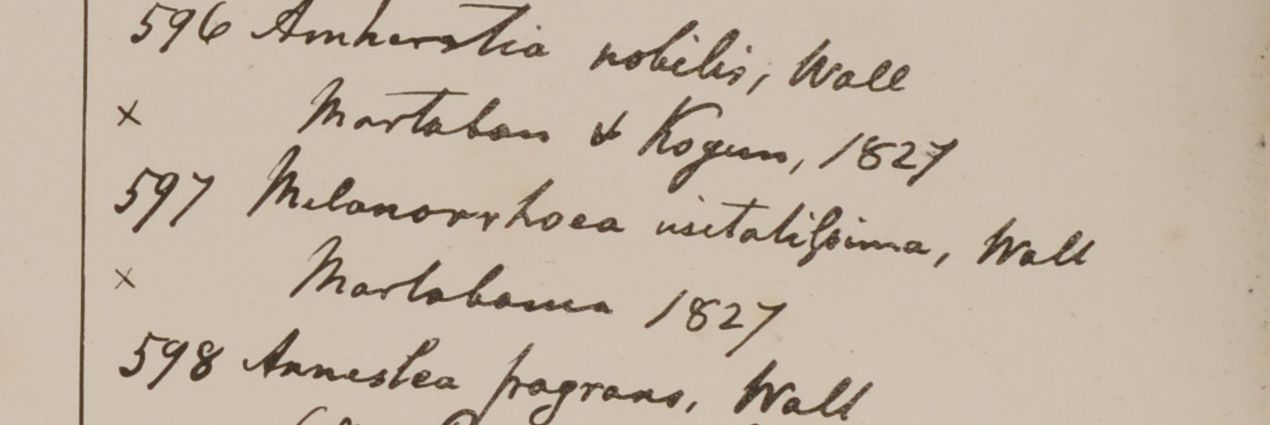 596 Amherstia nobilis, Wall
× Martaban & Kogun, 1827
597 Melanorrhoea usitatissima, Wall
× Martabania 1827
598 Anneslea fragrans, Wall